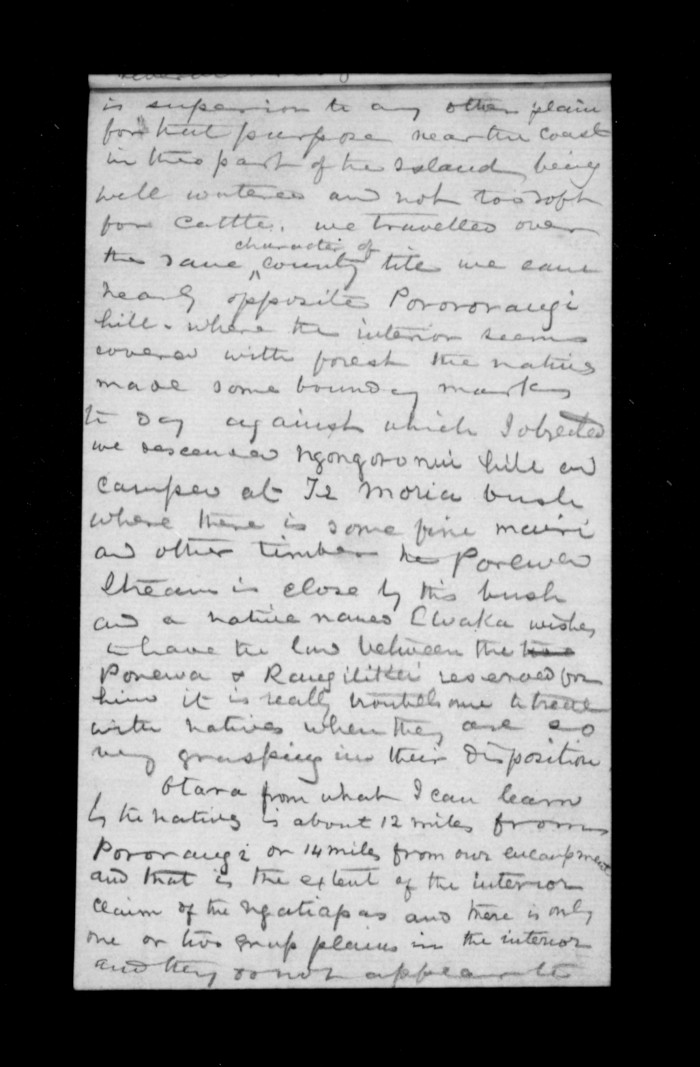 is superior to any other plain
for that purpose near the coast
in this part of the Island, being
well watered and not too soft
for cattle. we travelled over
character of
the same ^ county till we came
nearly opposite Pororoaugi
hill - where the interior seems
covered with forest the natives
made some boundy marks
to day against which I objected
we descended Ngongoronui hill and
camped at Te Moria bush
where there is some fine mairi
and other timber the Porewa
Stream is close by this bush
and a native named Ewaka wishes
to have the land between the
Porewa & Rangitikei reserved for
him it is really troublesome to treat
with natives when they are so
very grasping in their disposition
Otara from what I can learn
by the natives is about 12 miles from
Pororaugi or 14 miles from our encampment
and that is the extent of the interior
claim of the Ngatiapas and there is only
one or two grass plains in the interior
and they do not appear to